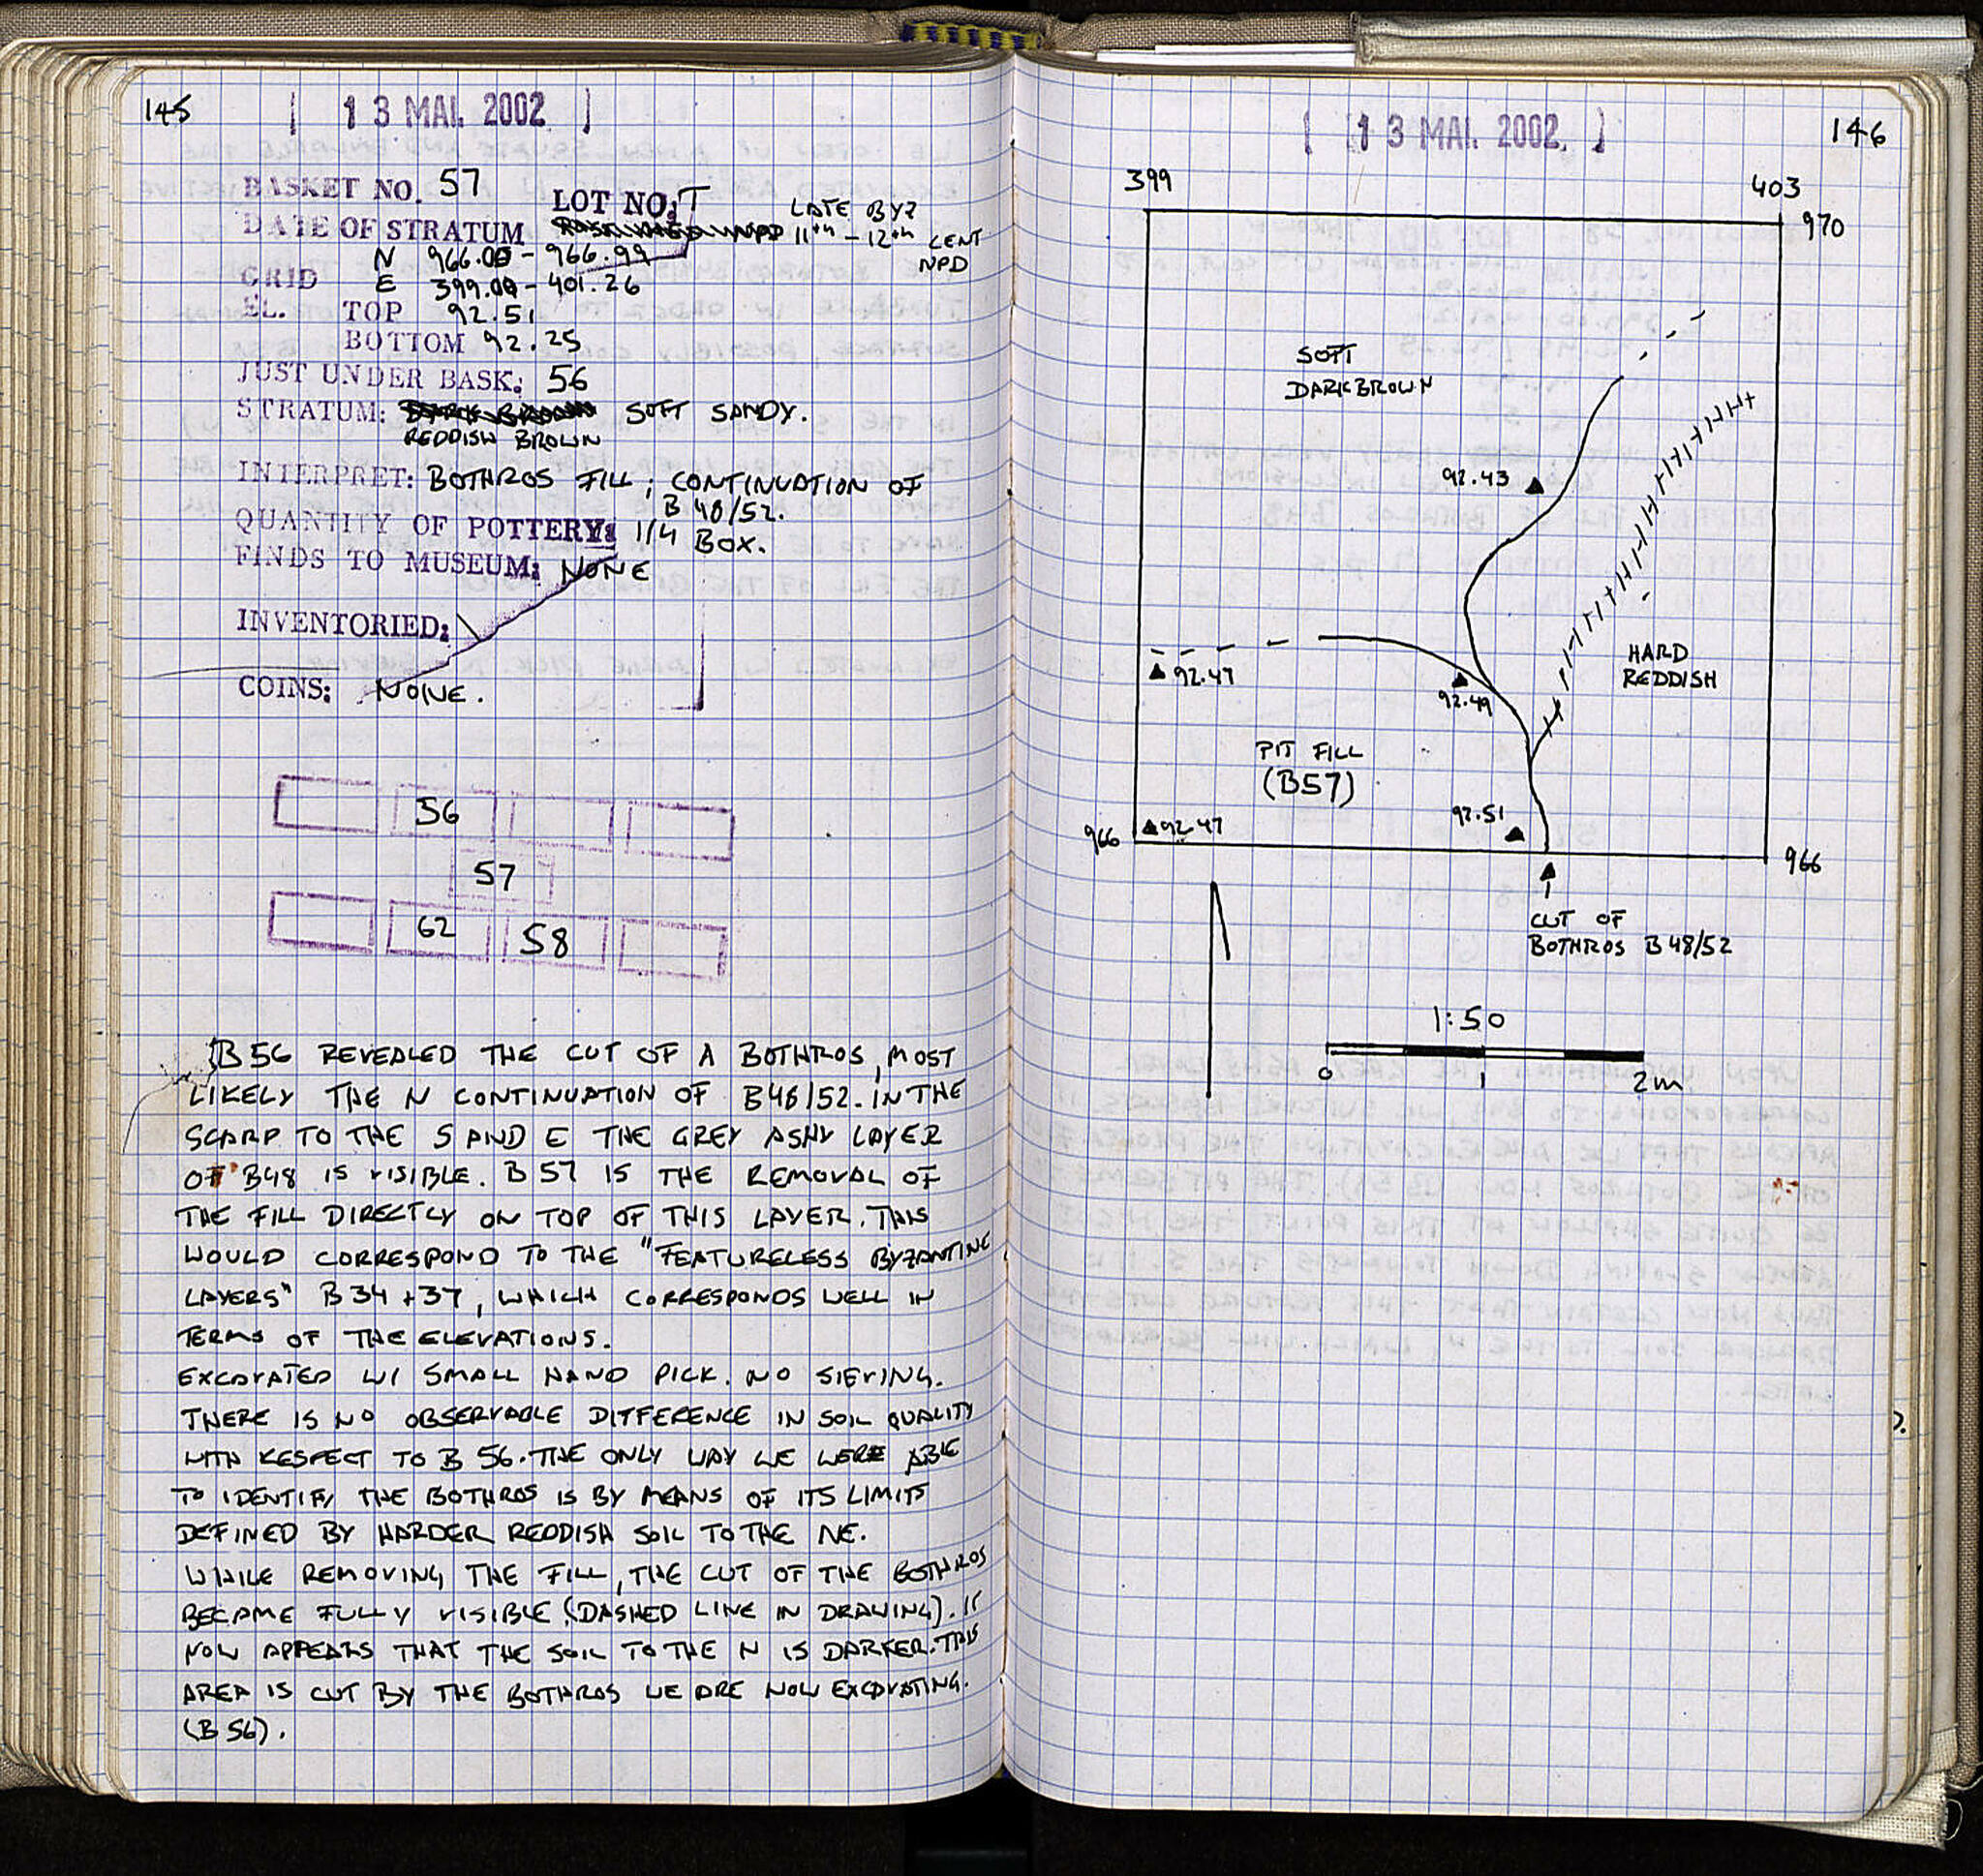 145
13 MAI. 2002
BASKET NO. 57
LOT NO: T
LATE BYZ
DATE OF STRATUM 11th - 12th CENT
NPD
GRID N 966.00 - 966.99
E 399.00 - 401.26
EL. TOP 92.51
BOTTOM 92.25
JUST UNDER BASK: 56
STRATUM: SOFT SANDY.
REDDISH BROWN
INTERPRET: BOTHROS FILL; CONTINUATION OF
B 48/52.
QUANTITY OF POTTERY: 1/4 BOX.
FINDS TO MUSEUM: NONE
INVENTORIED:
COINS: NONE.
56
57
62 58
B 56 REVEALED THE CUT OF A BOTHROS, MOST
LIKELY THE N CONTINUATION OF B48/52. IN THE
SCARP TO THE S AND E THE GREY ASHY LAYER
OF B48 IS VISIBLE. B 57 IS THE REMOVAL OF
THE FILL DIRECTLY ON TOP OF THIS LAYER. THIS
WOULD CORRESPOND TO THE "FEATURELESS BYZANTINE
LAYERS" B34 + 37, WHICH CORRESPONDS WELL IN
TERMS OF THE ELEVATIONS.
EXCAVATED W/ SMALL HAND PICK. NO SIEVING.
THERE IS NO OBSERVABLE DIFFERENCE IN SOIL QUALITY
WITH RESPECT TO B 56. THE ONLY WAY WE WERE ABLE
TO IDENTIFY THE BOTHROS IS BY MEANS OF ITS LIMITS
DEFINED BY HARDER REDDISH SOIL TO THE NE.
WHILE REMOVING THE FILL, THE CUT OF THE BOTHROS
BECAME FULLY VISIBLE (DASHED LINE IN DRAWING). IT
NOW APPEARS THAT THE SOIL TO THE N IS DARKER. THIS
AREA IS CUT BY THE BOTHROS WE ARE NOW EXCAVATING.
(B 56).
13 MAI. 2002
146
399
403
970
SOFT
DARK BROWN
92.43
HARD
REDDISH
92.47
92.49
PIT FILL
(B57)
92.51
92.47
966
966
CUT OF
BOTHROS B 48/52
1:50
0 1 2m